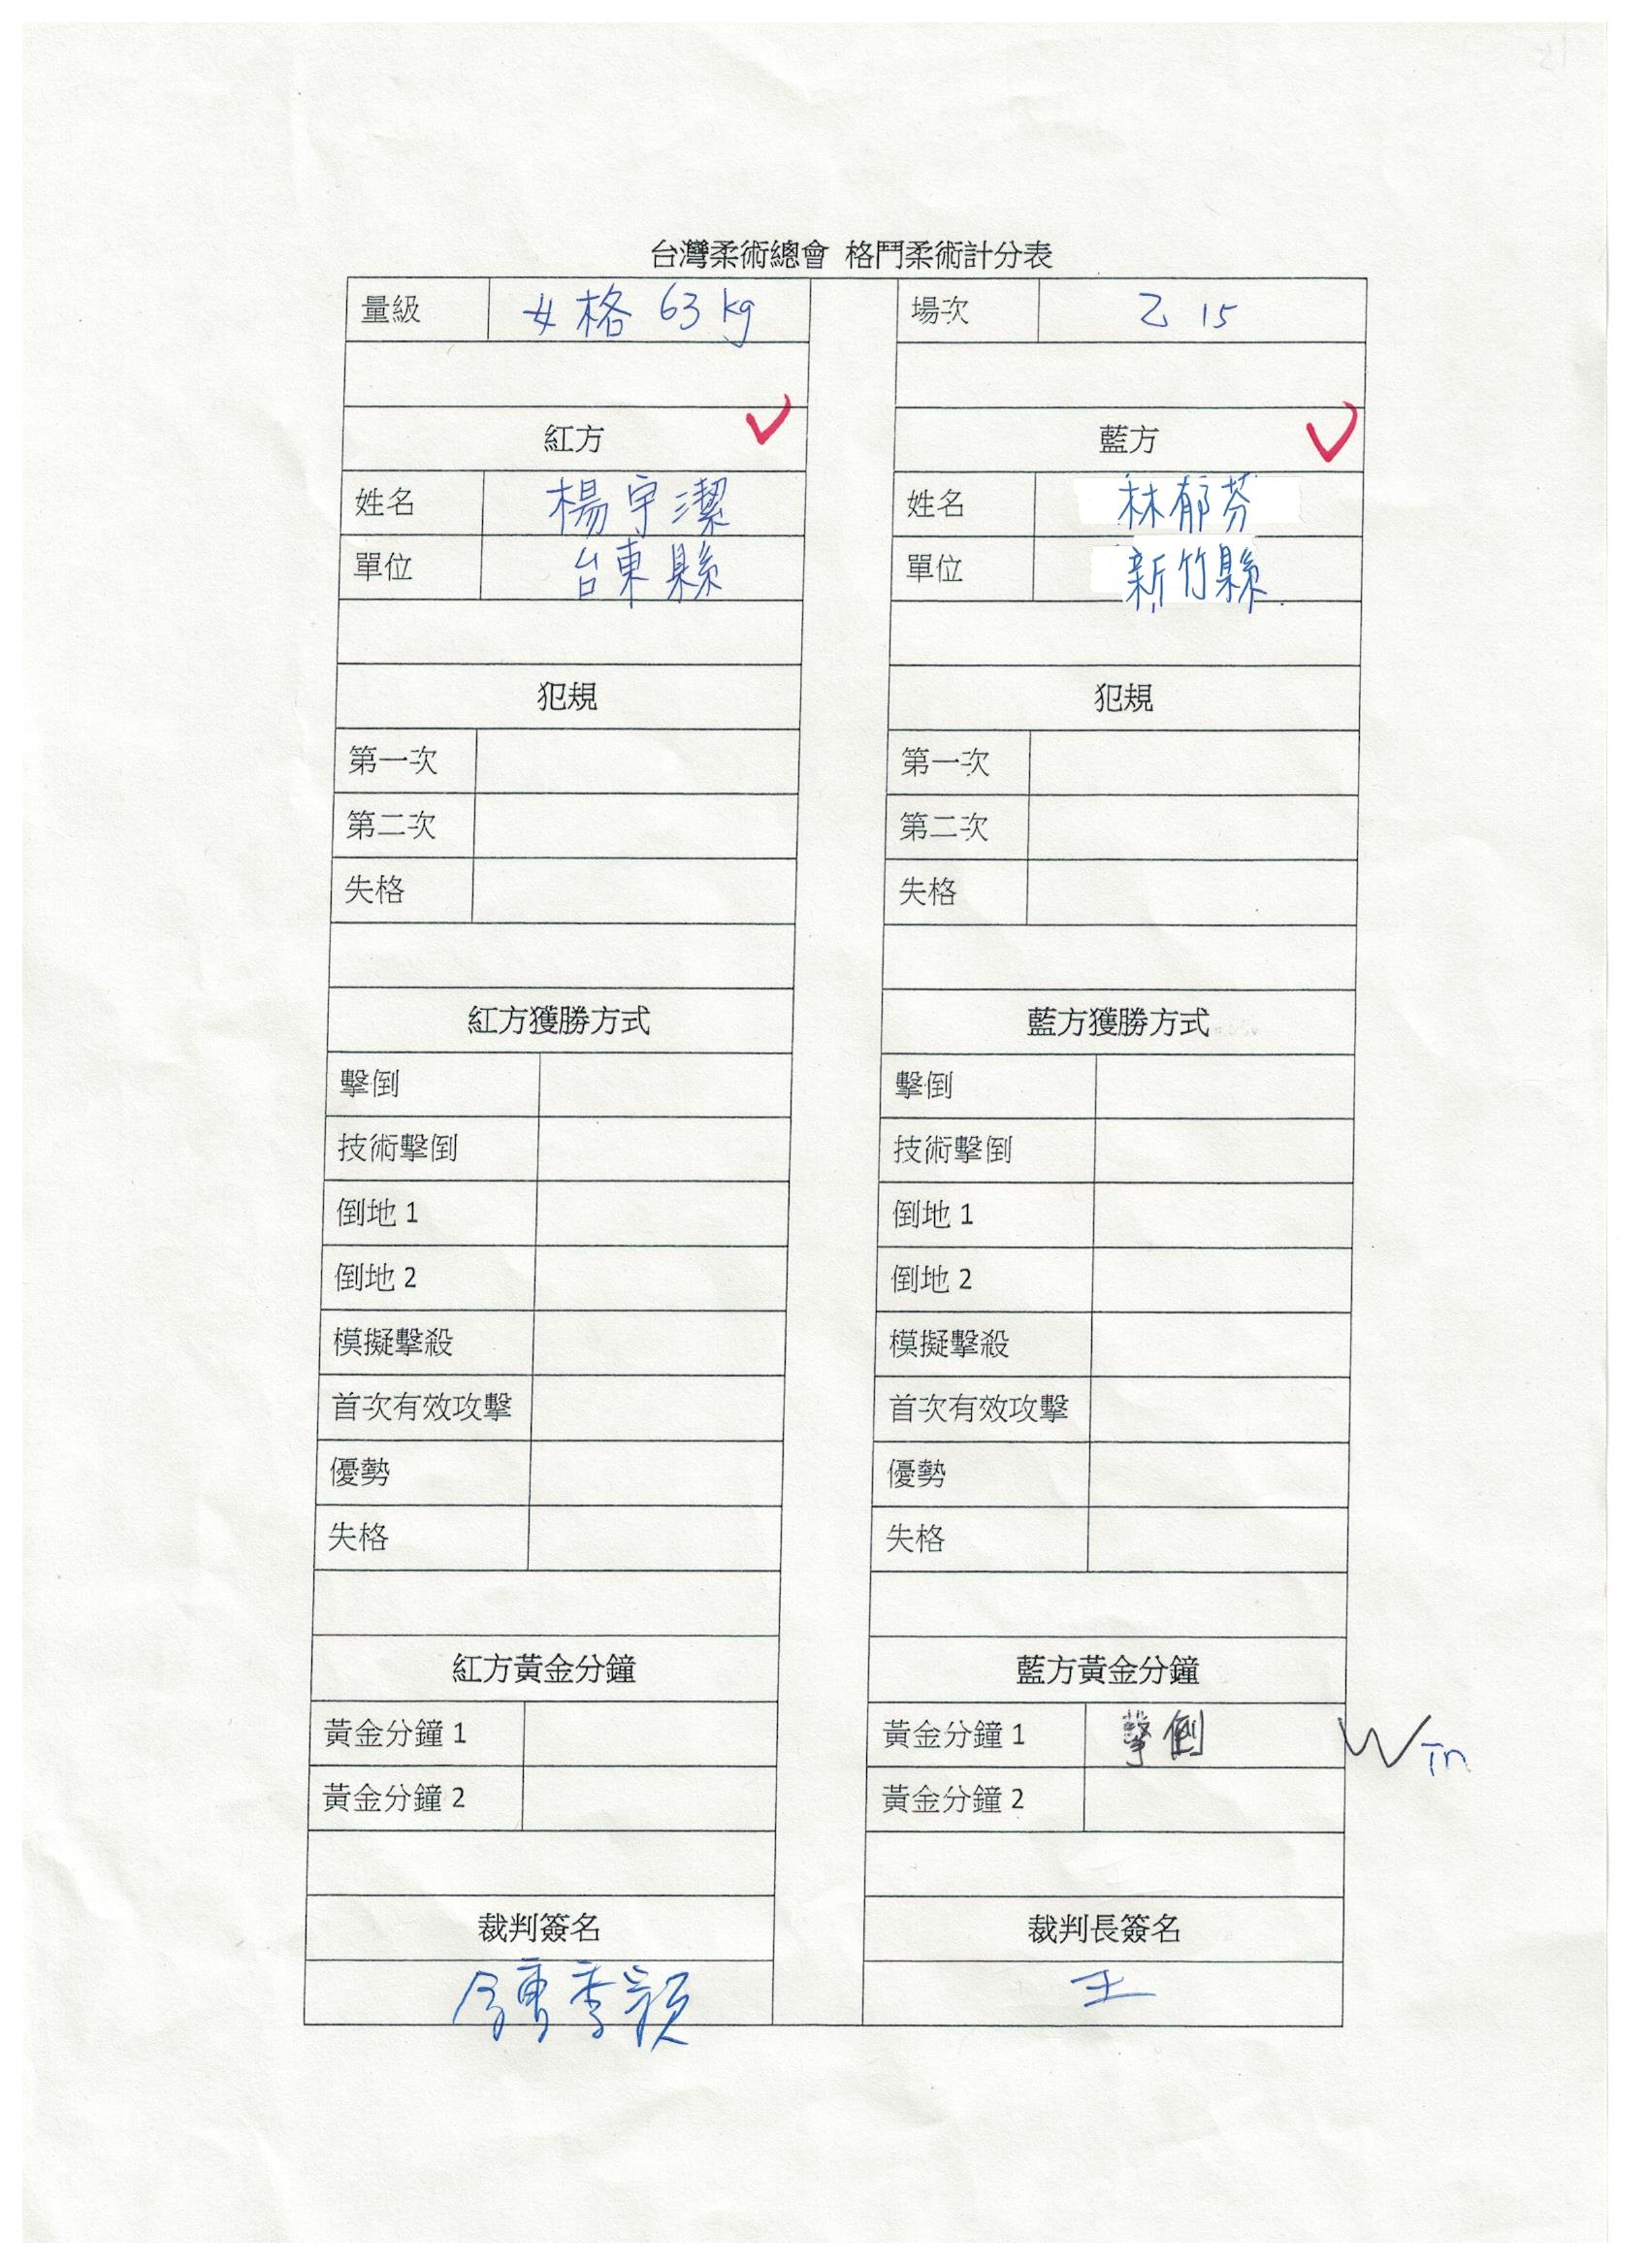 台灣柔術總會 格鬥柔術計分表
量級 女格 63 kg 場次 乙 15
紅方 藍方
姓名 楊宇潔 姓名 林郁芬
單位 台東縣 單位 新竹縣
犯規 犯規
第一次 第一次
第二次 第二次
失格 失格
紅方獲勝方式 藍方獲勝方式
擊倒 擊倒
技術擊倒 技術擊倒
倒地 1 倒地 1
倒地 2 倒地 2
模擬擊殺 模擬擊殺
首次有效攻擊 首次有效攻擊
優勢 優勢
失格 失格
紅方黃金分鐘 藍方黃金分鐘
黃金分鐘 1 黃金分鐘 1 擊倒 Win
黃金分鐘 2 黃金分鐘 2
裁判簽名 裁判長簽名
季穎 王